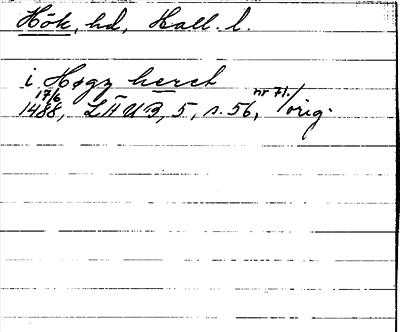 Hök, hd, Hall. l.
i Høgz heret
17/6
1488, LÄUB, 5, s. 56, nr 71./orig.